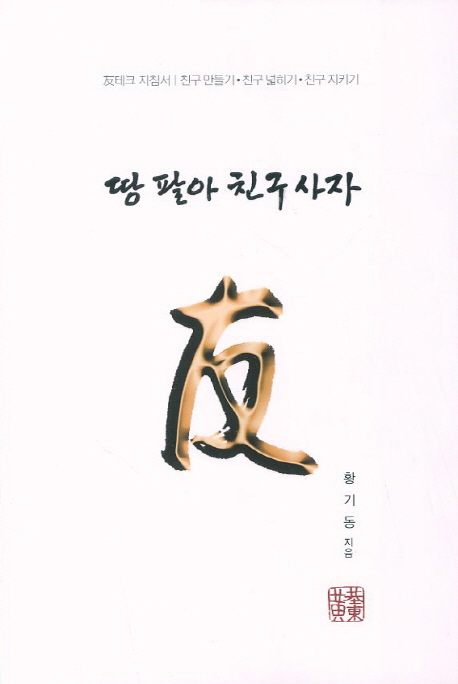 友테크 지침서 | 친구 만들기 • 친구 넓히기 • 친구 지키기
땅 팔아 친구 사자
友
황기동 지음
黃基東